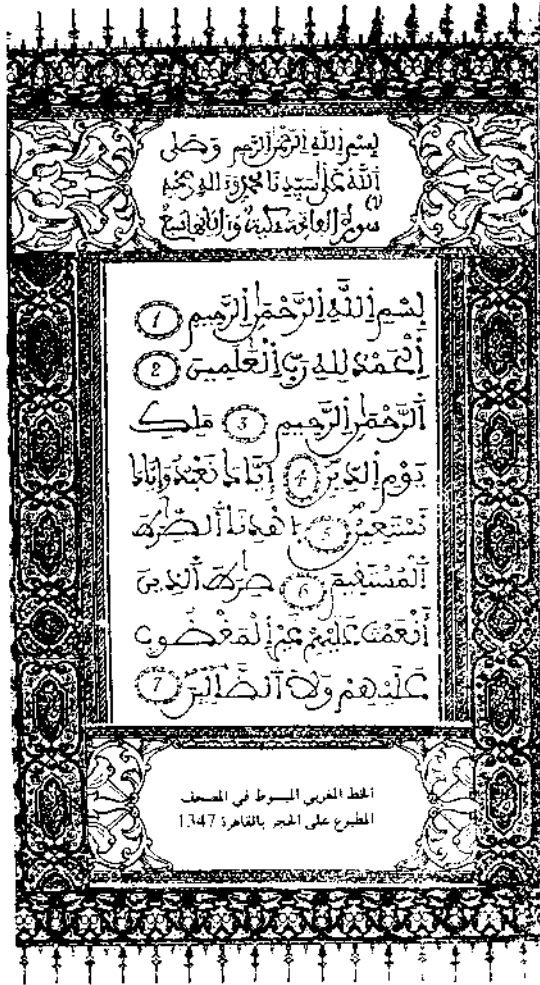 بِسْمِ اِللَّهِ اِلرَّحْمَٰنِ اِلرَّحِيمِ وَصَلَّى
اَللَّهُ عَلَى سَيِّدِنَا مُحَمَّدٍ وَءَالِهِ وَصَحْبِهِ
سُورَةُ الْفَاتِحَةِ مَكِّيَّةٌ وَءَايَاتُهَا سَبْعٌ
بِسْمِ اِللَّهِ اِلرَّحْمَٰنِ اِلرَّحِيمِ 1
اِلْحَمْدُ لِلهِ رَبِّ اِلْعَٰلَمِينَ 2
اَلرَّحْمَٰنِ اِلرَّحِيمِ 3 مَلِكِ
يَوْمِ اِلدِّينِ 4 إِيَّاكَ نَعْبُدُ وَإِيَّاكَ
نَسْتَعِينُ 5 اَهْدِنَا اَلصِّرَٰطَ
اَلْمُسْتَقِيمَ 6 صِرَٰطَ اَلذِينَ
أَنْعَمْتَ عَلَيْهِمْ غَيْرِ اِلْمَغْضُوبِ
عَلَيْهِمْ وَلَا اَلضَّالِّينَ 7
الخط المغربي المبسوط في المصحف
المطبوع على الحجر بالقاهرة 1347